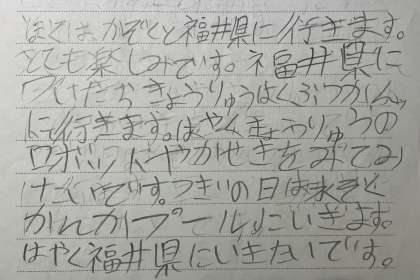 ぼくは、かぞくと福井県に行きます。
とても楽しみです。福井県に
つけたらきょうりゅうはくぶつかん
に行きます。はやくきょうりゅうの
ロボットやかせきをみてみ
たいです。つぎの日は水きと
かんかプールにいきます。
はやく福井県にいきたいです。